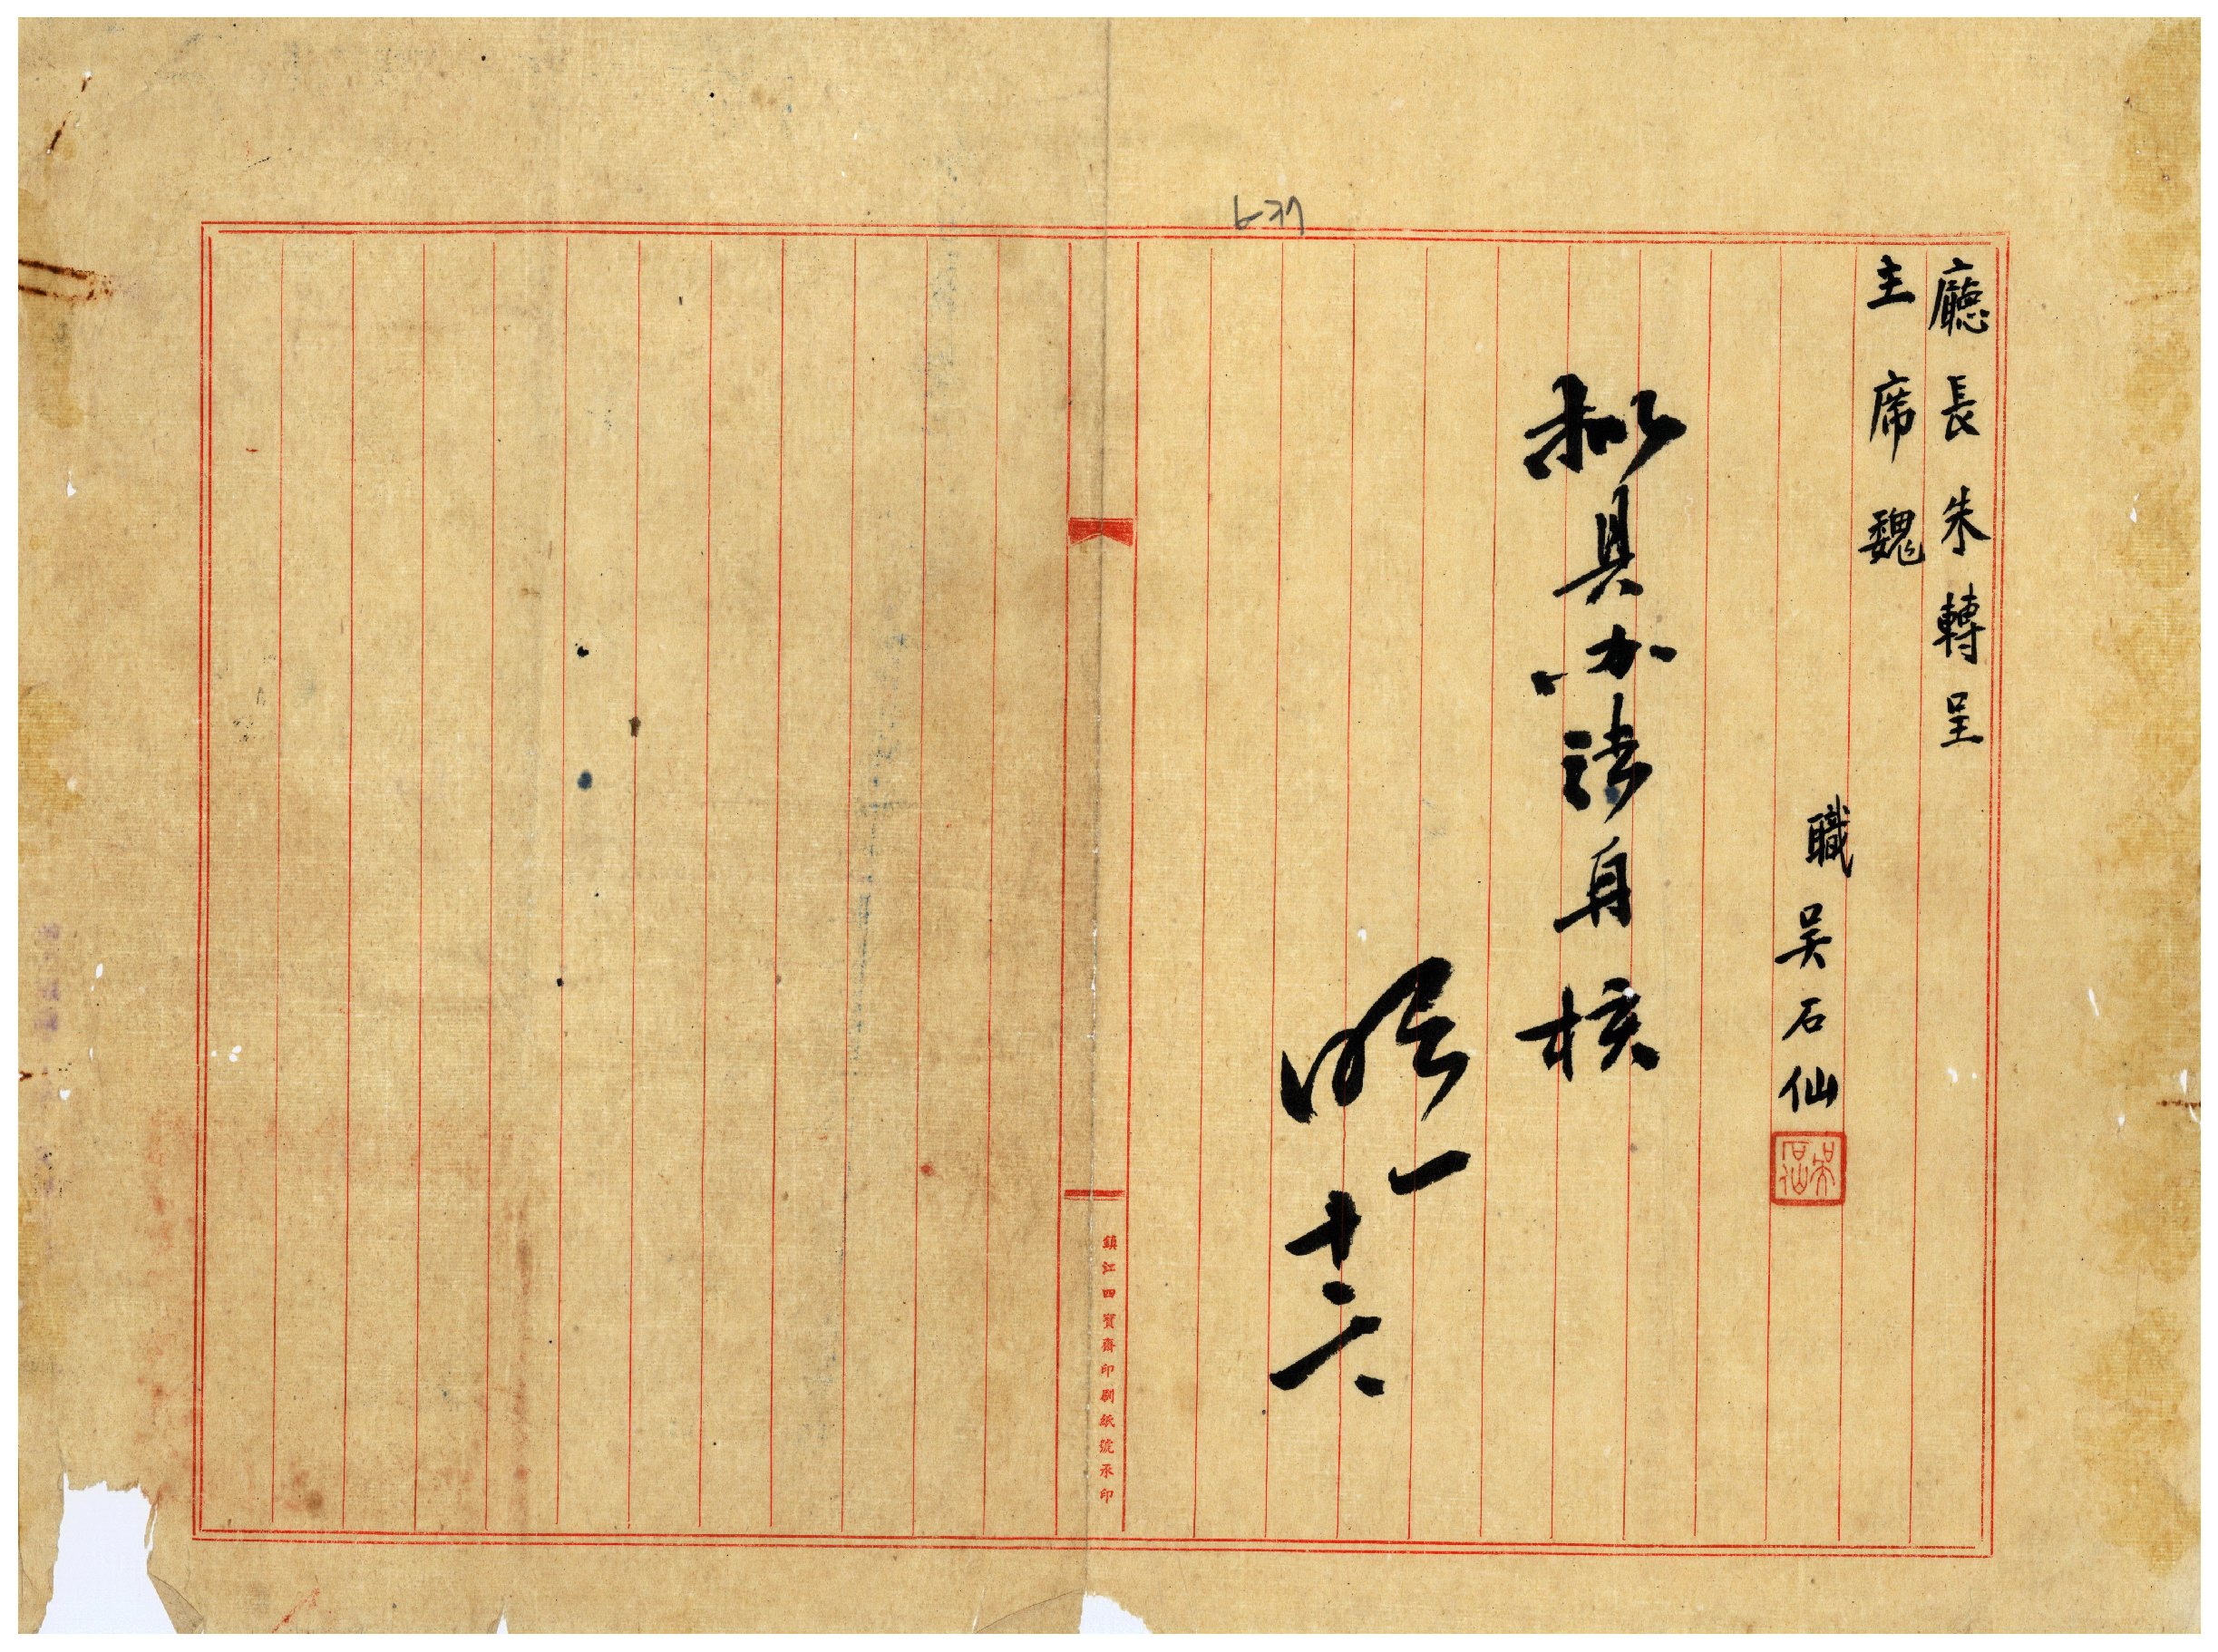 廳長朱轉呈
主席魏
職吳石仙
吳石仙
拟具办法 核
一
十六
鎮江四寶齋印刷紙號承印